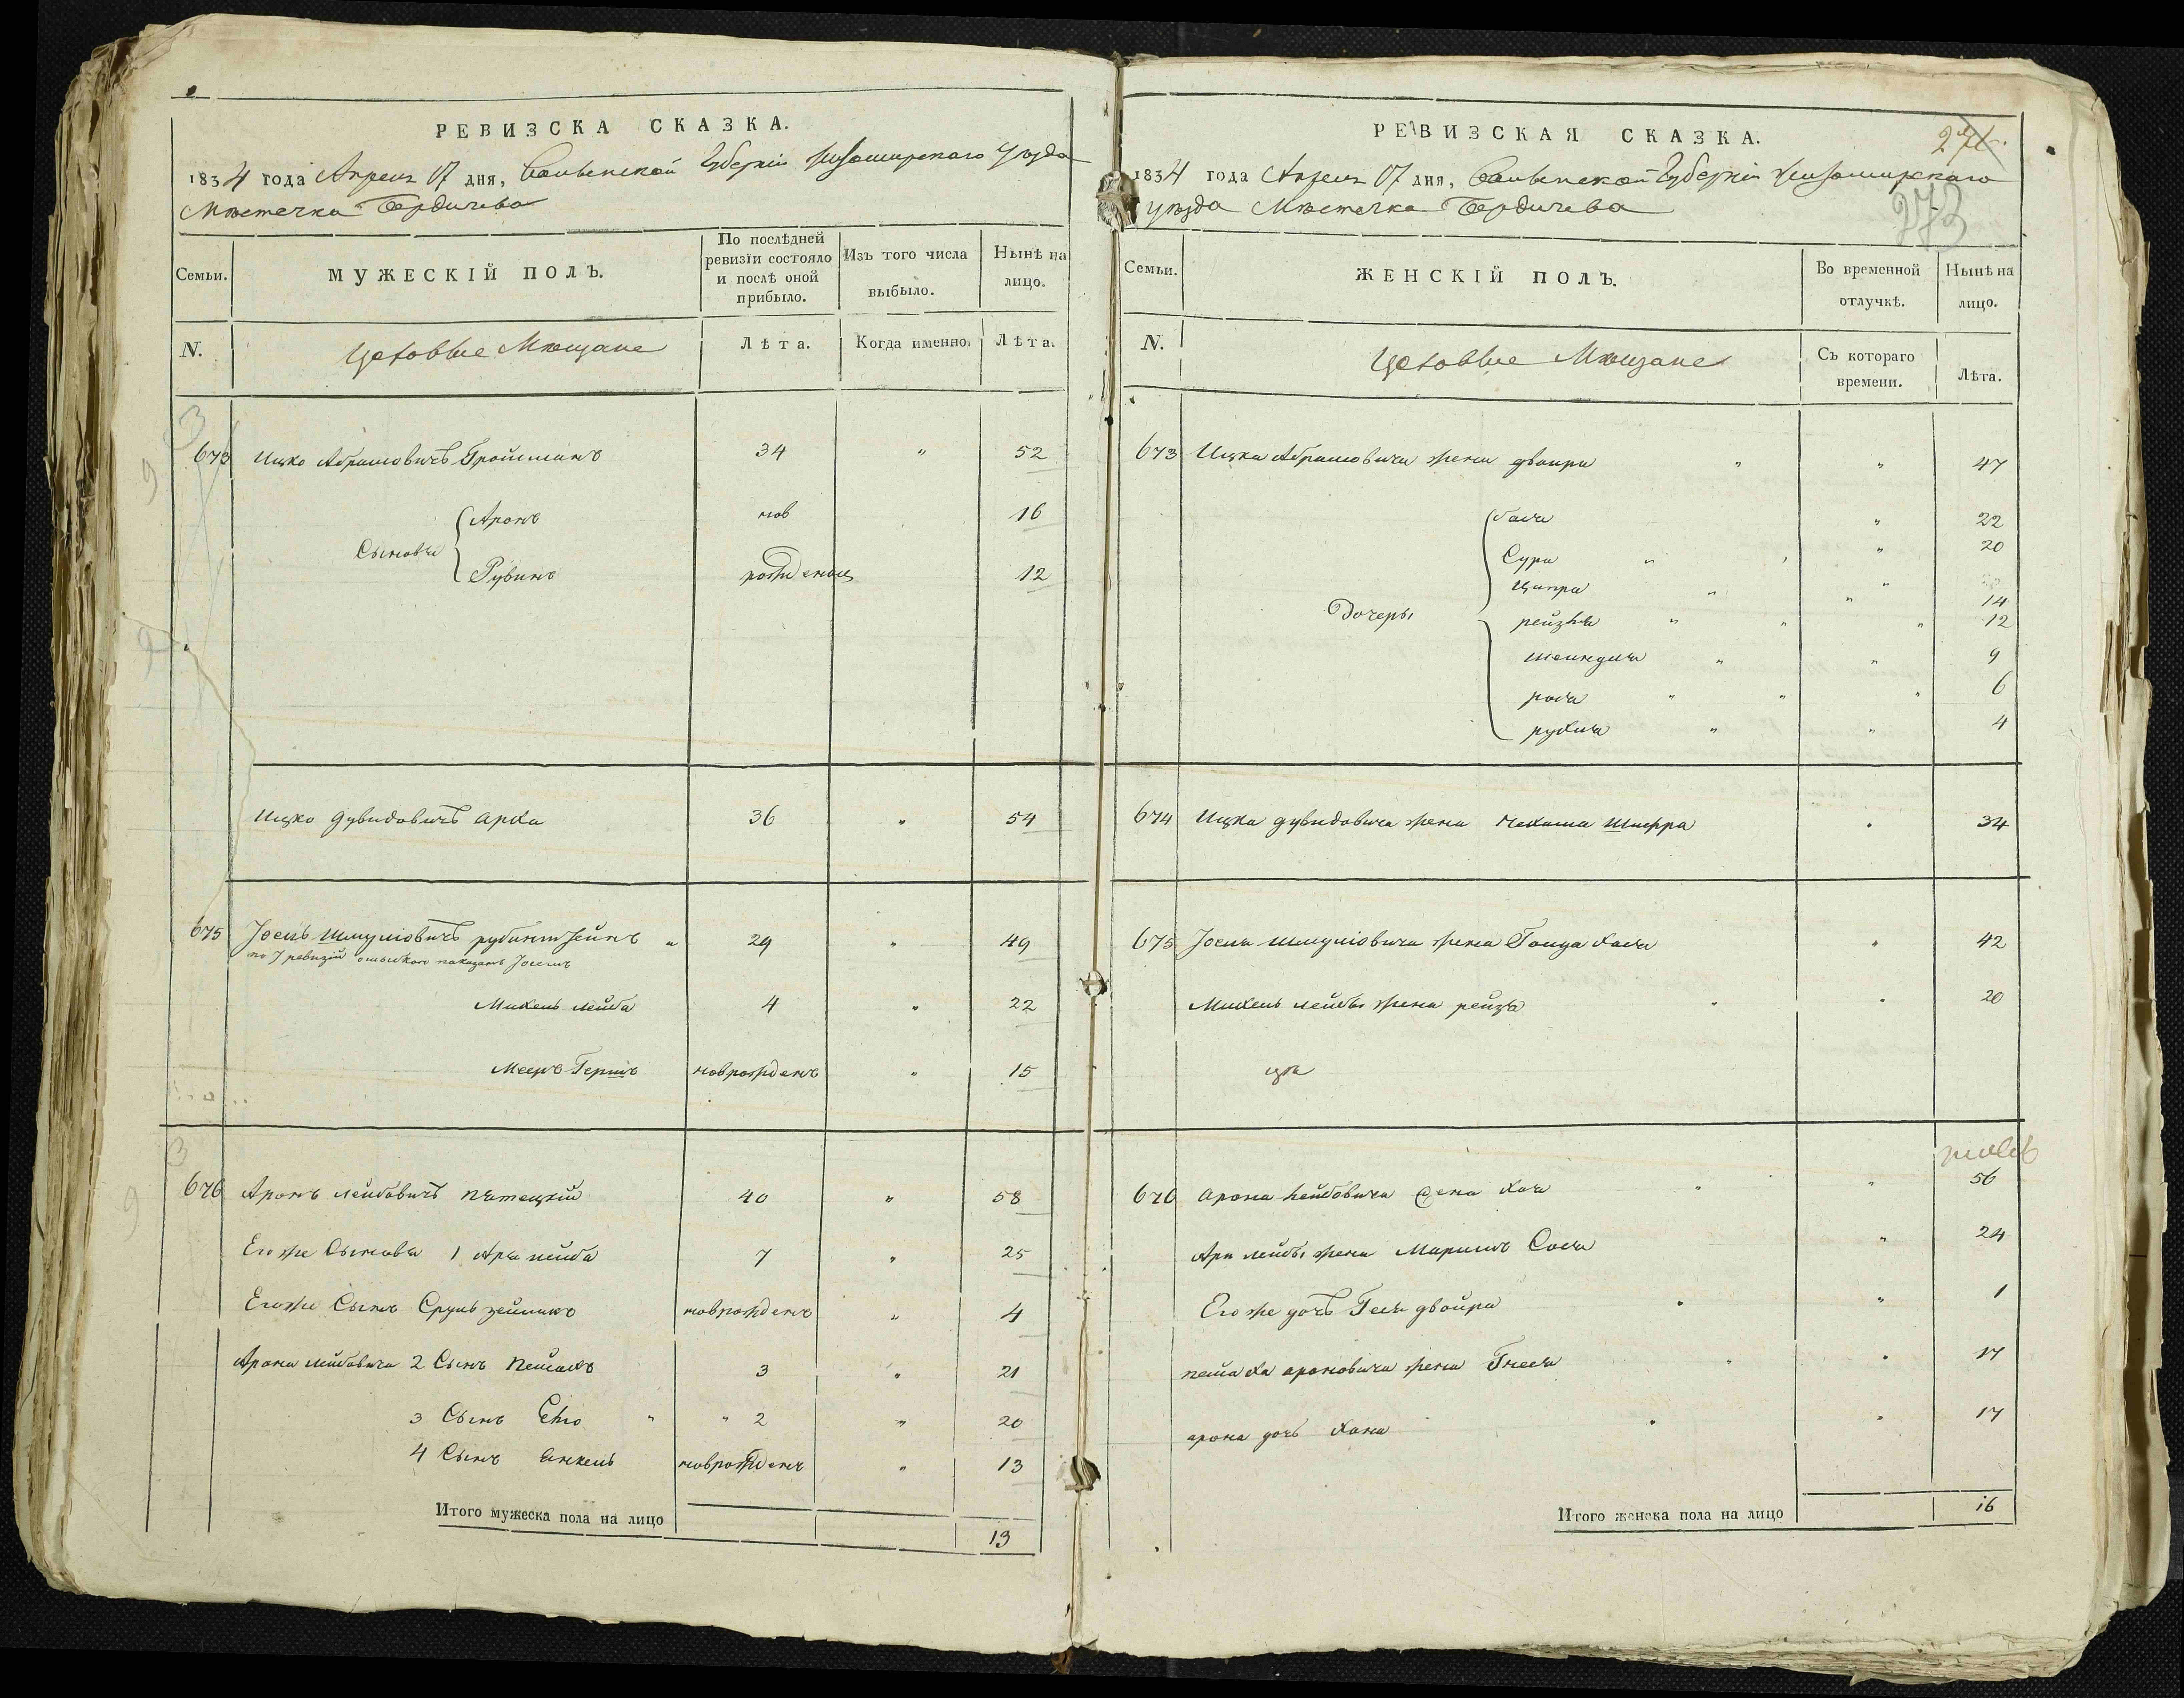 РЕВИЗСКА СКАЗКА.
1834 года Апреля 17 дня, Волынской Губерніи Житомирскаго Уѣзда
Мѣстечка Бердичева
Семьи.
МУЖЕСКІЙ ПОЛЪ.
По послѣдней ревизіи состояло и послѣ оной прибыло.
Изъ того числа выбыло.
Нынѣ на лицо.
N.
Цеховые Мѣщане
Лѣта.
Когда именно.
Лѣта.
673 Ицко Абрамовичъ Тройшманъ 34 " 52
Аронъ нов 16
Сыновья
Рувинъ рожденыя 12
Ицко Дувидовичъ Арха 36 " 54
675 Іосель Шмуліовичъ рубинштейнъ " 29 " 49
по 7 ревизіи ошибкою показанъ Іосемъ
Михель лейба 4 " 22
Мееръ Гершъ новрожденъ " 15
676 Аронъ лейбовичъ пятецкій 40 " 58
Его же Сыновья 1 Арія лейба 7 " 25
Его же Сынъ Сруль зейликъ новрожденъ " 4
Арона лейбовича 2 Сынъ пейсахъ 3 " 21
3 Сынъ Ехіо " " 2 " 20
4 Сынъ янкель новрожденъ " 13
Итого мужеска пола на лицо 13
РЕВИЗСКАЯ СКАЗКА.
273
1834 года Апреля 17 дня, Волынской Губерніи Житомирскаго
уѣзда Мѣстечка Бердичева
Семьи.
ЖЕНСКІЙ ПОЛЪ.
Во временной отлучкѣ.
Нынѣ на лицо.
N.
Цеховые Мѣщане
Съ котораго времени.
Лѣта.
673 Ицка Абрамовича жена двойра " " 47
бася " 22
Сура " " " 20
Ципра " "
Дочеры
" 14
рейзля " " " 12
шейндля " " 9
рося " " " 6
рухля " " 4
674 Ицка дувидовича жена нехама Шифра " 34
675 Іосля Шмуліовича жена Голда хася " 42
Михель лейбы жена рейзя " " 20
676 Арона лейбовича жена хая " " 56
Арія лейбы жена Маріимъ Сося " 24
Его же дочъ Геся двойра " " 1
пейсаха ароновича жена Гнеся " " 17
арона дочь хана " " 17
Итого женска пола на лицо 16